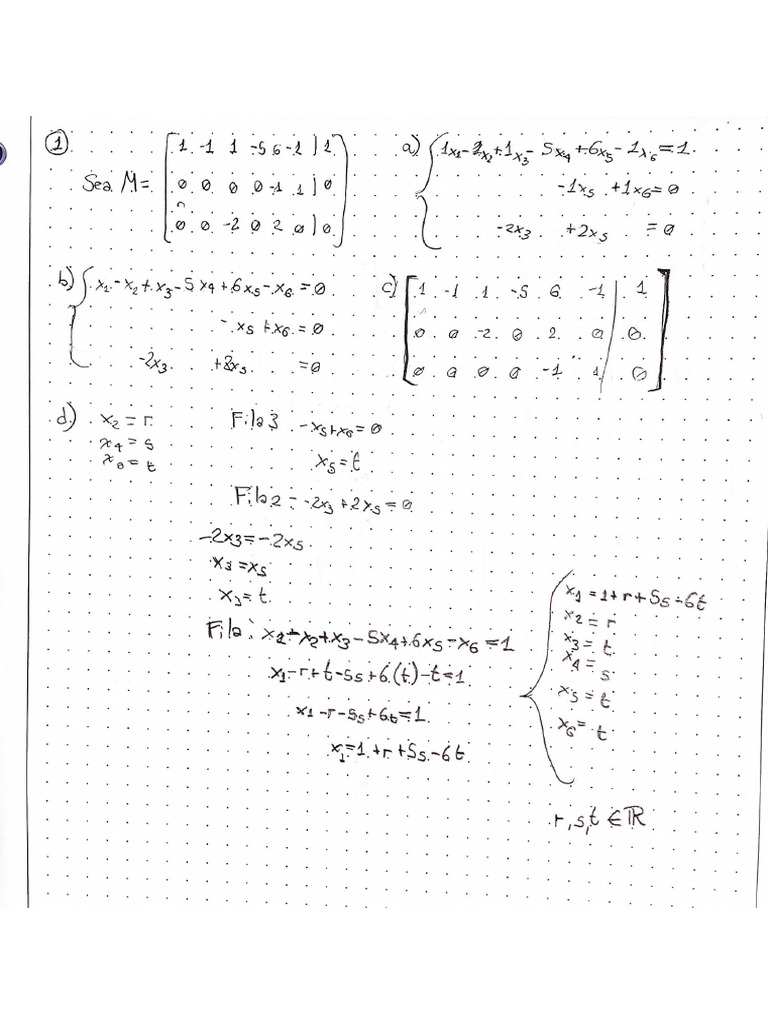 ① [ 1 -1 1 -5 6 -1 | 1 ]
Sea M = [ 0 0 0 0 -1 1 | 0 ]
[ 0 0 -2 0 2 0 | 0 ]
a) { 1x₁ - 1x₂ + 1x₃ - 5x₄ + 6x₅ - 1x₆ = 1
-1x₅ + 1x₆ = 0
-2x₃ + 2x₅ = 0
b) { x₁ - x₂ + x₃ - 5x₄ + 6x₅ - x₆ = 0
- x₅ + x₆ = 0
-2x₃ + 2x₅ = 0
c) [ 1 -1 1 -5 6 -1 | 1 ]
[ 0 0 -2 0 2 0 | 0 ]
[ 0 0 0 0 -1 1 | 0 ]
d) x₂ = r
x₄ = s
x₆ = t
Fila 3 -x₅ + x₆ = 0
x₅ = t
Fila 2 = -2x₃ + 2x₅ = 0
-2x₃ = -2x₅
x₃ = x₅
x₃ = t
Fila: x₁ - x₂ + x₃ - 5x₄ + 6x₅ - x₆ = 1
x₁ - r + t - 5s + 6.(t) - t = 1
x₁ - r - 5s + 6t = 1
x₁ = 1 + r + 5s - 6t
{ x₁ = 1 + r + 5s - 6t
x₂ = r
x₃ = t
x₄ = s
x₅ = t
x₆ = t
r, s, t ∈ ℝ